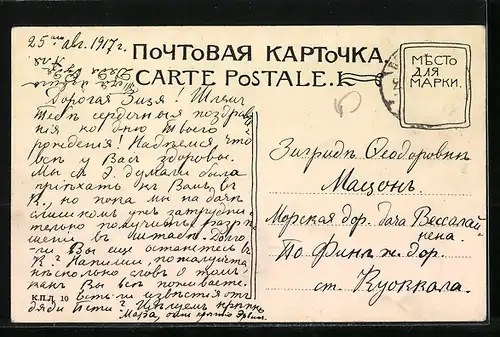 25го авг. 1917г.
ПОЧТОВАЯ КАРТОЧКА.
CARTE POSTALE.
МѢСТО
ДЛЯ
МАРКИ.
Дорогая Зизя! Шлемъ
Тебѣ сердечныя поздрав
нія ко дню Твоего
рожденія! Надѣемся, что
всѣ у Васъ здоровы.
Мы думали было
пріѣхать къ Вамъ, въ
К., но пока мы на дачѣ
слишкомъ ужъ затрудни
тельно получить разрѣ
шеніе въ Штабѣ. Долго-
ли Вы еще останетесь въ
К.? Напиши, пожалуйста
нѣсколько словъ о томъ,
какъ Вы всѣ поживаете.
К.П.Д. 10
Есть-ли извѣстія отъ
дяди Цѣлуемъ крѣпко
Мара,
Зигридъ Ѳеодоровнѣ
Мацонъ.
Морская дор. дача Вессалай-
нена.
По Финл. ж. дор.
ст. Куоккала.